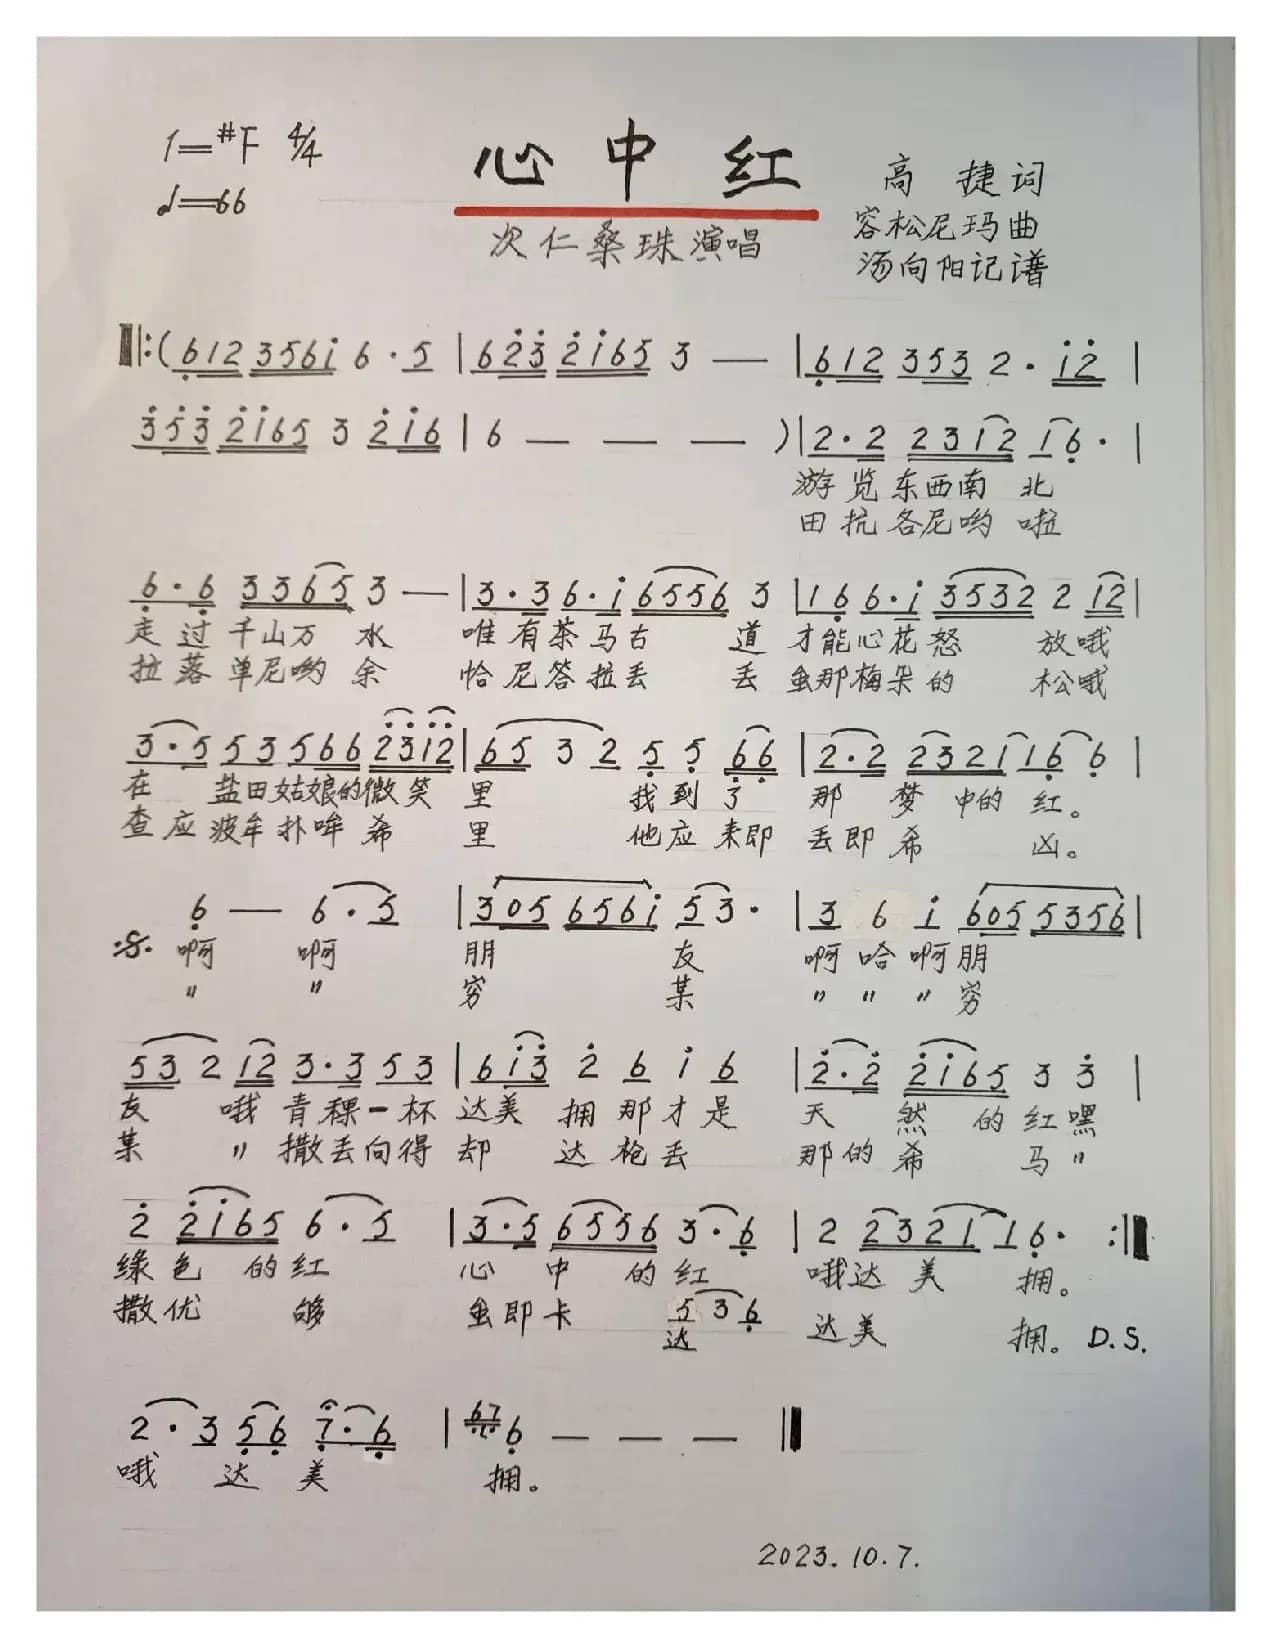 1=#F 4/4
♩=66
心中红
次仁桑珠演唱
高捷词
容松尼玛曲
汤向阳记谱
‖:(612 3561̇ 6·5 | 62̇3̇ 2̇1̇65 3 — | 6̣12 353 2·1̇2̇ |
3̇5̇3̇ 2̇1̇65 3 2̇1̇6 | 6 — — — )| 2·2 2312 16̣· |
游览东西南北
田抗各尼哟啦
6̣·6̣ 3365 3 — | 3·3 6·1̇ 6556 3 | 16̣ 6·1̇ 3532 2 12 |
走过千山万水 唯有茶马古道 才能心花怒放哦
拉落单尼哟余 恰尼答拉丢丢 虽那梅朵的松哦
3·5 53 566 2̇3̇1̇2̇ | 65 32 5̣ 5̣ 6̣6̣ | 2·2 2321 16̣ 6̣ |
在盐田姑娘的微笑里 找到了那梦中的红。
查应波牟扑哞希里 他应来即丢即希凶。
6̣ — 6·5 | 305 6561̇ 53· | 3 6 1̇ 605 5356 |
𝄋 啊啊朋友啊哈啊朋
〃 〃 穷某 〃 〃 〃 穷
532 12 3·3 53 | 61̇3̇ 2̇ 6 1̇ 6 | 2̇·2̇ 2̇1̇65 3 3̇ |
友哦青稞一杯达美拥那才是天然的红嘿
某 〃 撒丢向得却达枪丢那的希马 〃
2̇ 2̇1̇65 6·5 | 3·5 6556 3·6̣ | 2 2321 16̣· :‖
绿色的红 心中的红 哦达美拥。
撒优够 虽即卡 536̣ 达 达美拥。D.S.
2·3 5̣6̣ 7̣·6̣ | 6̣7̣6̣ — — — ‖
哦达美拥。
2023.10.7.